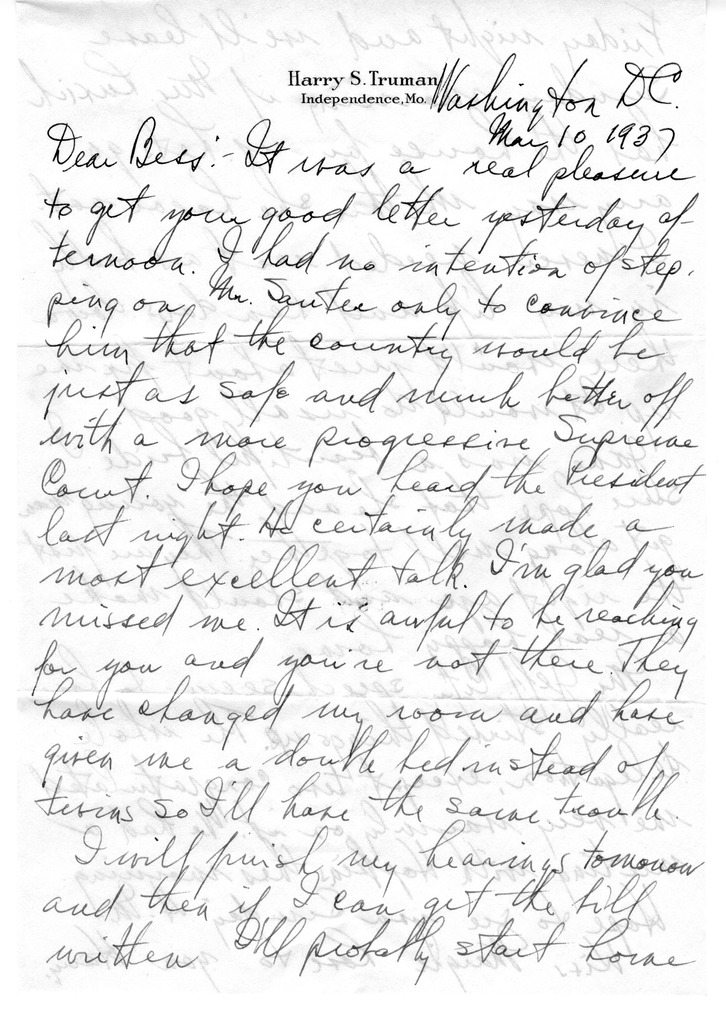 Harry S. Truman
Independence, Mo.
Washington D.C.
Mar 10 1937
Dear Bess:- It was a real pleasure
to get your good letter yesterday af-
ternoon. I had no intention of step-
ping on Mr. Souter only to convince
him that the country would be
just as safe and much better off
with a more progressive Supreme
Court. I hope you heard the President
last night. He certainly made a
most excellent talk. I'm glad you
missed me. It is awful to be reaching
for you and you're not there. They
have changed my room and have
given me a double bed instead of
twins so I'll have the same trouble.
I will finish my hearings tomorrow
and then if I can get the bill
written I'll probally start home